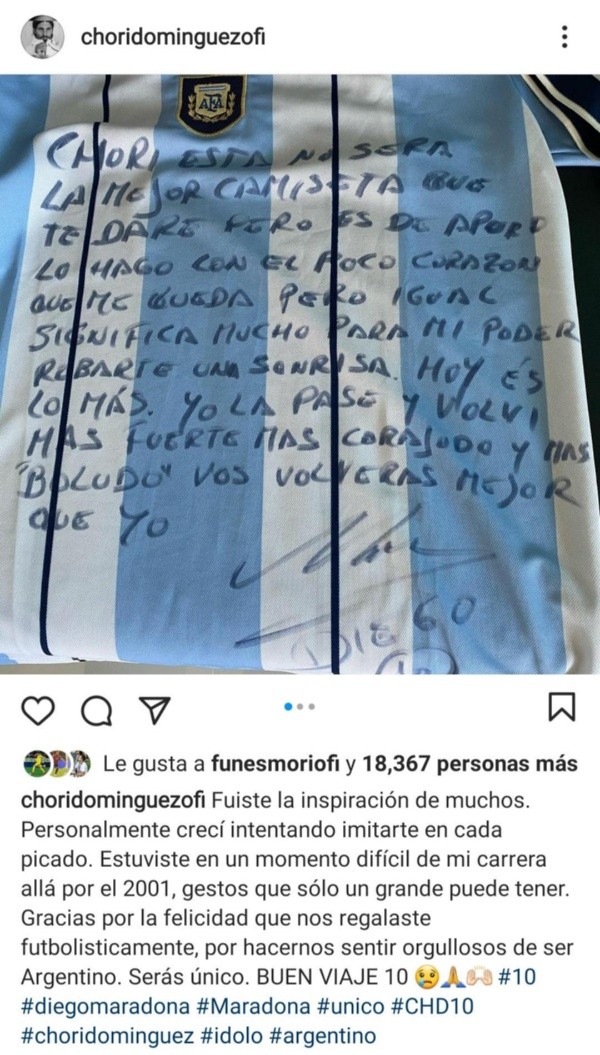 choridominguezofi
AFA
CHORI ESTA NO SERA
LA MEJOR CAMISETA QUE
TE DARE PERO ES DE APORO
LO HAGO CON EL POCO CORAZON
QUE ME QUEDA PERO IGUAL
SIGNIFICA MUCHO PARA MI PODER
ROBARTE UNA SONRISA. HOY ÉS
LO MÁS. YO LA PASÉ Y VOLVI
MAS FUERTE MAS CORAJUDO Y MAS
"BOLUDO" VOS VOLVERAS MEJOR
QUE YO
DIE 60
10
Le gusta a funesmoriofi y 18,367 personas más
choridominguezofi Fuiste la inspiración de muchos.
Personalmente crecí intentando imitarte en cada
picado. Estuviste en un momento difícil de mi carrera
allá por el 2001, gestos que sólo un grande puede tener.
Gracias por la felicidad que nos regalaste
futbolisticamente, por hacernos sentir orgullosos de ser
Argentino. Serás único. BUEN VIAJE 10 😢🙏🙌🏻 #10
#diegomaradona #Maradona #unico #CHD10
#choridominguez #idolo #argentino